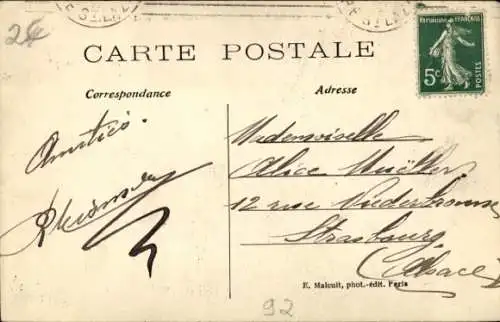 25€
CARTE POSTALE
REPUBLIQUE FRANÇAISE
5c
POSTES
Correspondance
Adresse
Amitiés.
Mademoiselle
Alice Müller
12 rue
Strasbourg
(Alsace)
E. Malcuit, phot.-édit. Paris
92